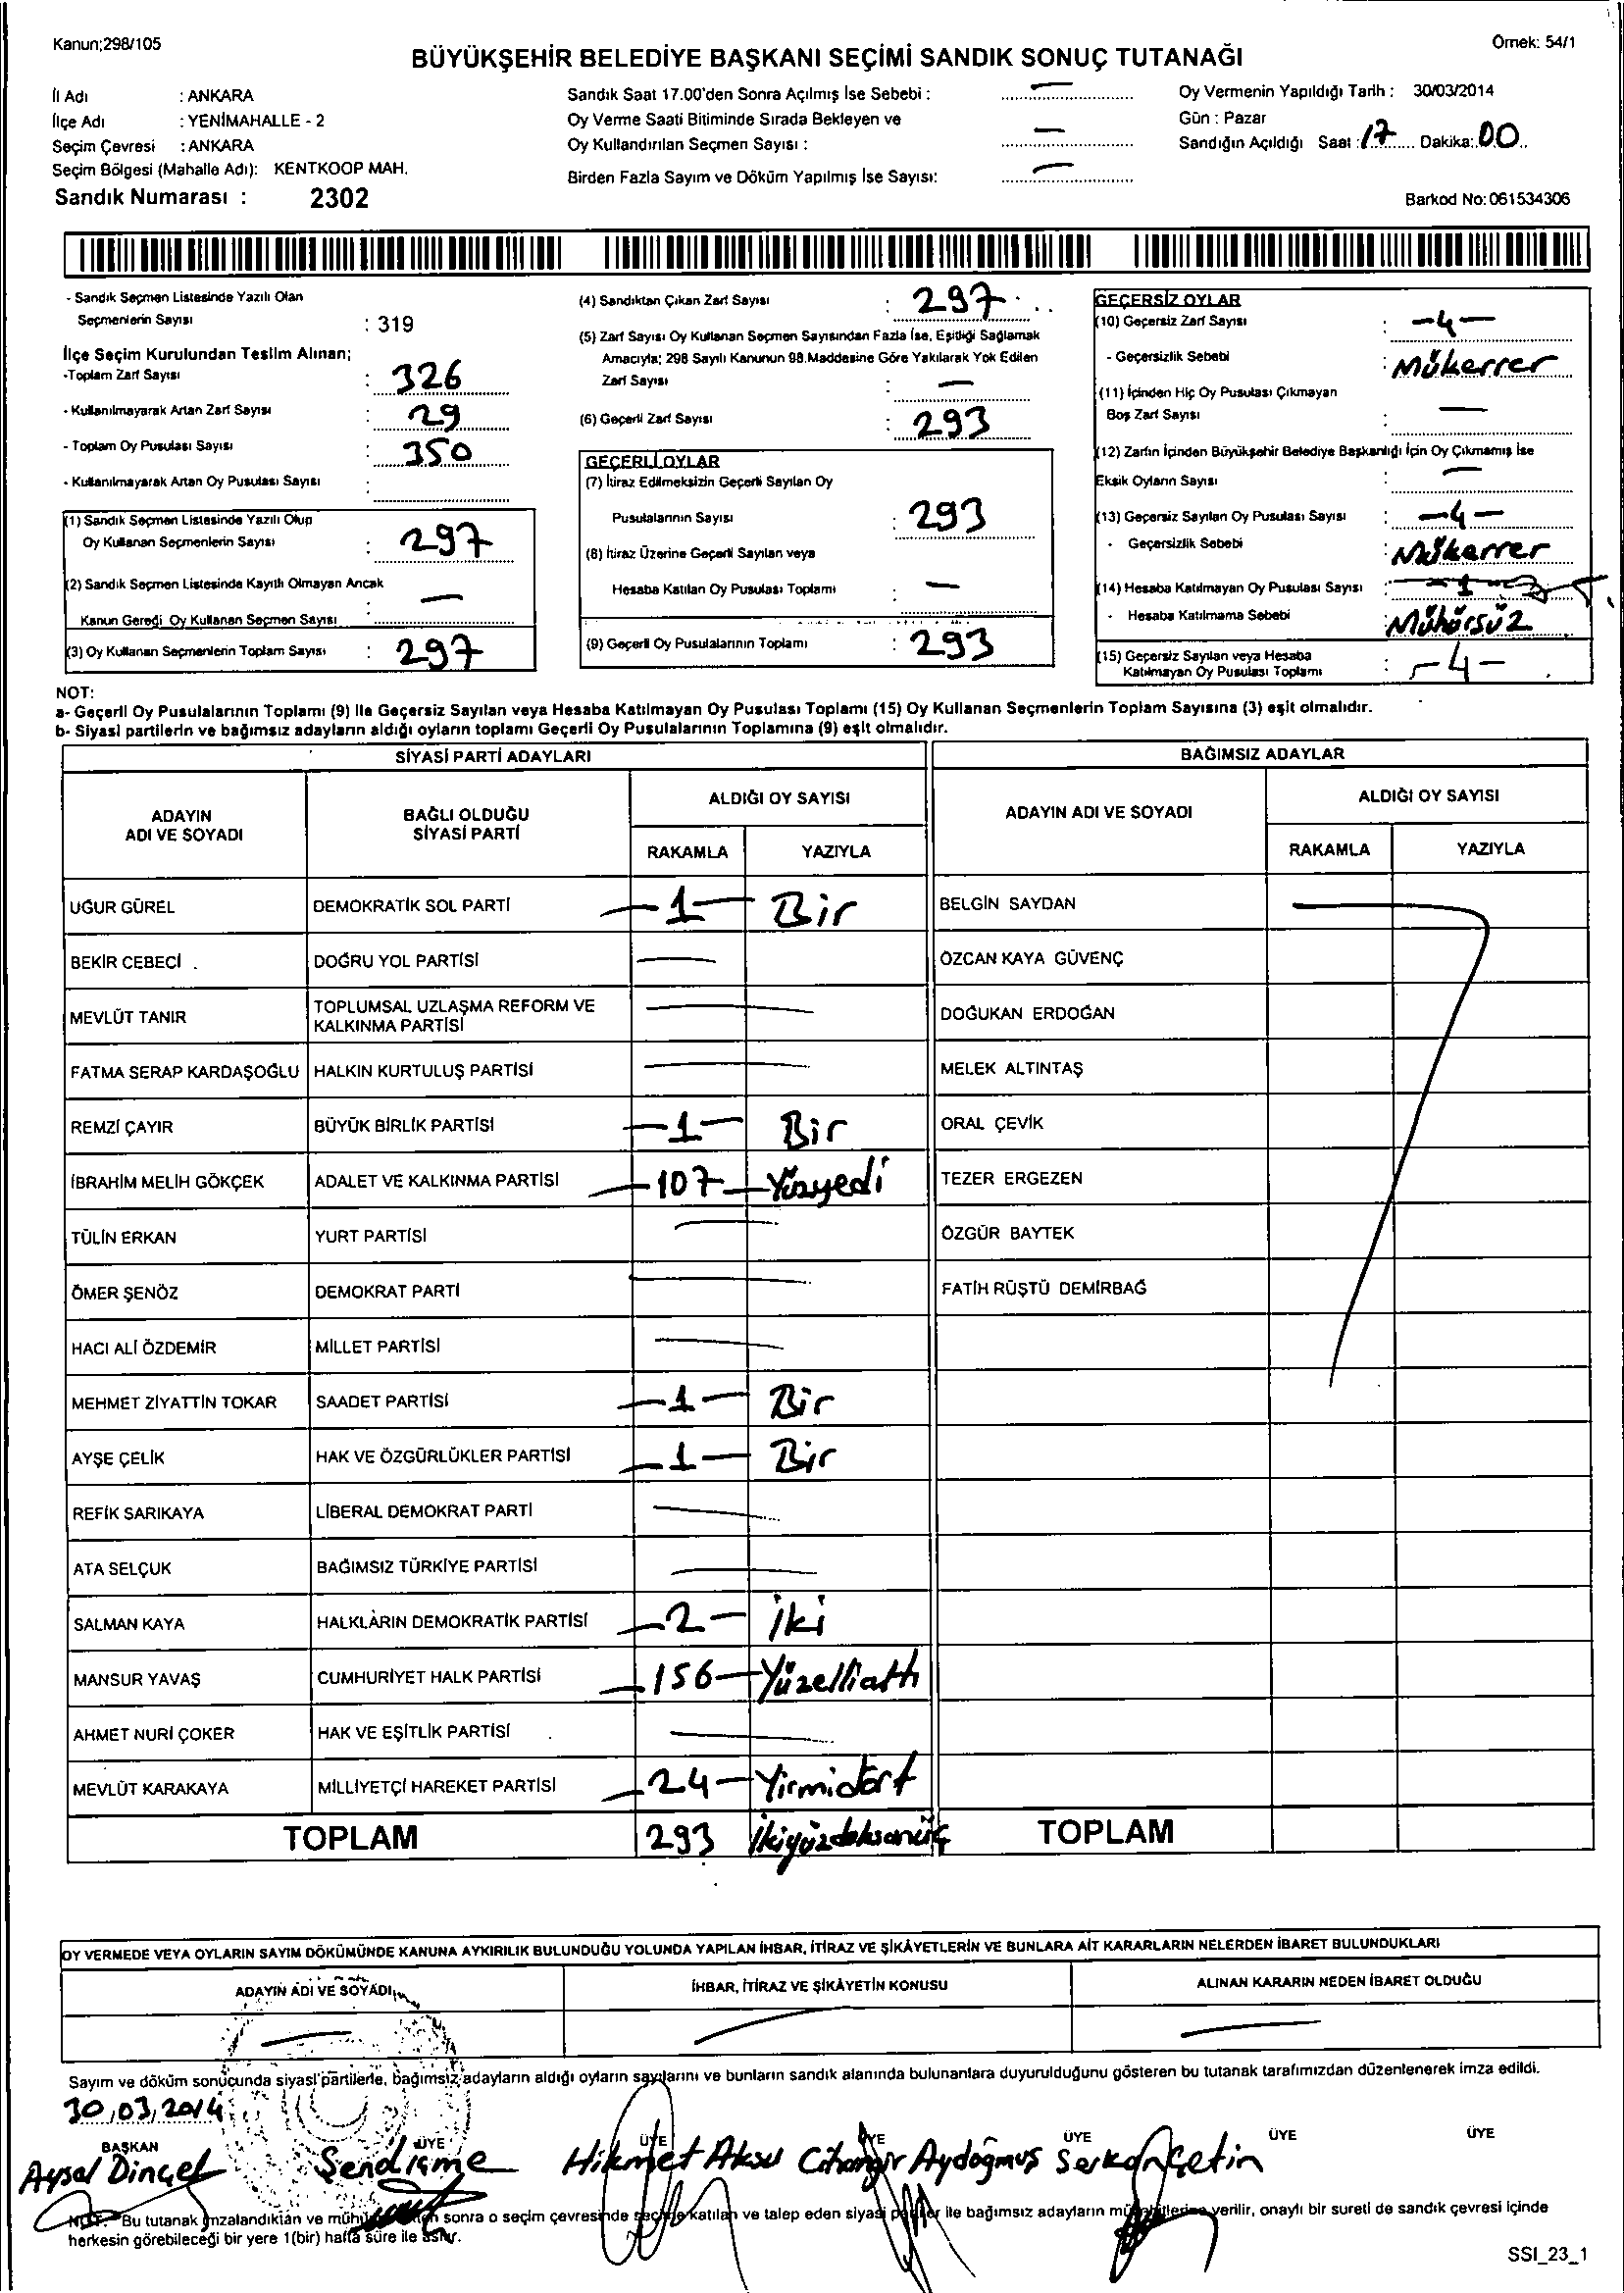 Kanun;298/105
Örnek: 54/1
BÜYÜKŞEHİR BELEDİYE BAŞKANI SEÇİMİ SANDIK SONUÇ TUTANAĞI
İl Adı : ANKARA
İlçe Adı : YENİMAHALLE - 2
Seçim Çevresi : ANKARA
Seçim Bölgesi (Mahalle Adı): KENTKOOP MAH.
Sandık Numarası : 2302
Sandık Saat 17.00'den Sonra Açılmış İse Sebebi : —
Oy Verme Saati Bitiminde Sırada Bekleyen ve
Oy Kullandırılan Seçmen Sayısı : —
Birden Fazla Sayım ve Döküm Yapılmış İse Sayısı: —
Oy Vermenin Yapıldığı Tarih : 30/03/2014
Gün : Pazar
Sandığın Açıldığı Saat : 17 Dakika: 00
Barkod No: 061534306
- Sandık Seçmen Listesinde Yazılı Olan
Seçmenlerin Sayısı : 319
İlçe Seçim Kurulundan Teslim Alınan;
-Toplam Zarf Sayısı : 326
- Kullanılmayarak Artan Zarf Sayısı : 29
- Toplam Oy Pusulası Sayısı : 350
- Kullanılmayarak Artan Oy Pusulası Sayısı :
(1) Sandık Seçmen Listesinde Yazılı Olup
Oy Kullanan Seçmenlerin Sayısı : 297
(2) Sandık Seçmen Listesinde Kayıtlı Olmayan Ancak
Kanun Gereği Oy Kullanan Seçmen Sayısı : —
(3) Oy Kullanan Seçmenlerin Toplam Sayısı : 297
(4) Sandıktan Çıkan Zarf Sayısı : 297
(5) Zarf Sayısı Oy Kullanan Seçmen Sayısından Fazla İse, Eşitliği Sağlamak
Amacıyla; 298 Sayılı Kanunun 98.Maddesine Göre Yakılarak Yok Edilen
Zarf Sayısı : —
(6) Geçerli Zarf Sayısı : 293
GEÇERLİ OYLAR
(7) İtiraz Edilmeksizin Geçerli Sayılan Oy
Pusulalarının Sayısı : 293
(8) İtiraz Üzerine Geçerli Sayılan veya
Hesaba Katılan Oy Pusulası Toplamı : —
(9) Geçerli Oy Pusulalarının Toplamı : 293
GEÇERSİZ OYLAR
(10) Geçersiz Zarf Sayısı : -4-
- Geçersizlik Sebebi : Mükerrer
(11) İçinden Hiç Oy Pusulası Çıkmayan
Boş Zarf Sayısı : —
(12) Zarfın İçinden Büyükşehir Belediye Başkanlığı İçin Oy Çıkmamış İse
Eksik Oyların Sayısı : —
(13) Geçersiz Sayılan Oy Pusulası Sayısı : -4-
- Geçersizlik Sebebi : Mükerrer
(14) Hesaba Katılmayan Oy Pusulası Sayısı : -1-
- Hesaba Katılmama Sebebi : Mühürsüz
(15) Geçersiz Sayılan veya Hesaba
Katılmayan Oy Pusulası Toplamı : -4-
NOT:
a- Geçerli Oy Pusulalarının Toplamı (9) ile Geçersiz Sayılan veya Hesaba Katılmayan Oy Pusulası Toplamı (15) Oy Kullanan Seçmenlerin Toplam Sayısına (3) eşit olmalıdır.
b- Siyasi partilerin ve bağımsız adayların aldığı oyların toplamı Geçerli Oy Pusulalarının Toplamına (9) eşit olmalıdır.
SİYASİ PARTİ ADAYLARI
BAĞIMSIZ ADAYLAR
ADAYIN ADI VE SOYADI
BAĞLI OLDUĞU SİYASİ PARTİ
ALDIĞI OY SAYISI
RAKAMLA YAZIYLA
ADAYIN ADI VE SOYADI
ALDIĞI OY SAYISI
RAKAMLA YAZIYLA
UĞUR GÜREL DEMOKRATİK SOL PARTİ -1- Bir BELGİN SAYDAN
BEKİR CEBECİ DOĞRU YOL PARTİSİ — ÖZCAN KAYA GÜVENÇ
MEVLÜT TANIR TOPLUMSAL UZLAŞMA REFORM VE KALKINMA PARTİSİ — DOĞUKAN ERDOĞAN
FATMA SERAP KARDAŞOĞLU HALKIN KURTULUŞ PARTİSİ — MELEK ALTINTAŞ
REMZİ ÇAYIR BÜYÜK BİRLİK PARTİSİ -1- Bir ORAL ÇEVİK
İBRAHİM MELİH GÖKÇEK ADALET VE KALKINMA PARTİSİ -107- Yüzyedi TEZER ERGEZEN
TÜLİN ERKAN YURT PARTİSİ — ÖZGÜR BAYTEK
ÖMER ŞENÖZ DEMOKRAT PARTİ — FATİH RÜŞTÜ DEMİRBAĞ
HACI ALİ ÖZDEMİR MİLLET PARTİSİ —
MEHMET ZİYATTİN TOKAR SAADET PARTİSİ -1- Bir
AYŞE ÇELİK HAK VE ÖZGÜRLÜKLER PARTİSİ -1- Bir
REFİK SARIKAYA LİBERAL DEMOKRAT PARTİ —
ATA SELÇUK BAĞIMSIZ TÜRKİYE PARTİSİ —
SALMAN KAYA HALKLARIN DEMOKRATİK PARTİSİ -2- İki
MANSUR YAVAŞ CUMHURİYET HALK PARTİSİ -156- Yüzelliatlı
AHMET NURİ ÇOKER HAK VE EŞİTLİK PARTİSİ —
MEVLÜT KARAKAYA MİLLİYETÇİ HAREKET PARTİSİ -24- Yirmidört
TOPLAM 293 İkiyüzdoksanüç TOPLAM
OY VERMEDE VEYA OYLARIN SAYIM DÖKÜMÜNDE KANUNA AYKIRILIK BULUNDUĞU YOLUNDA YAPILAN İHBAR, İTİRAZ VE ŞİKÂYETLERİN VE BUNLARA AİT KARARLARIN NELERDEN İBARET BULUNDUKLARI
ADAYIN ADI VE SOYADI İHBAR, İTİRAZ VE ŞİKÂYETİN KONUSU ALINAN KARARIN NEDEN İBARET OLDUĞU
Sayım ve döküm sonucunda siyasi partilerle, bağımsız adayların aldığı oyların sayılarını ve bunların sandık alanında bulunanlara duyurulduğunu gösteren bu tutanak tarafımızdan düzenlenerek imza edildi.
30.03.2014
BAŞKAN ÜYE ÜYE ÜYE ÜYE ÜYE ÜYE
Aysel Dinçel Hikmet Aksu Cihangir Aydoğmuş Serkan Çetin
NOT: Bu tutanak imzalandıktan ve sonra o seçim çevresinde seçime katılan ve talep eden siyasi partiler ile bağımsız adayların müşahitlerine verilir, onaylı bir sureti de sandık çevresi içinde
herkesin görebileceği bir yere 1(bir) hafta süre ile asılır.
SSI_23_1